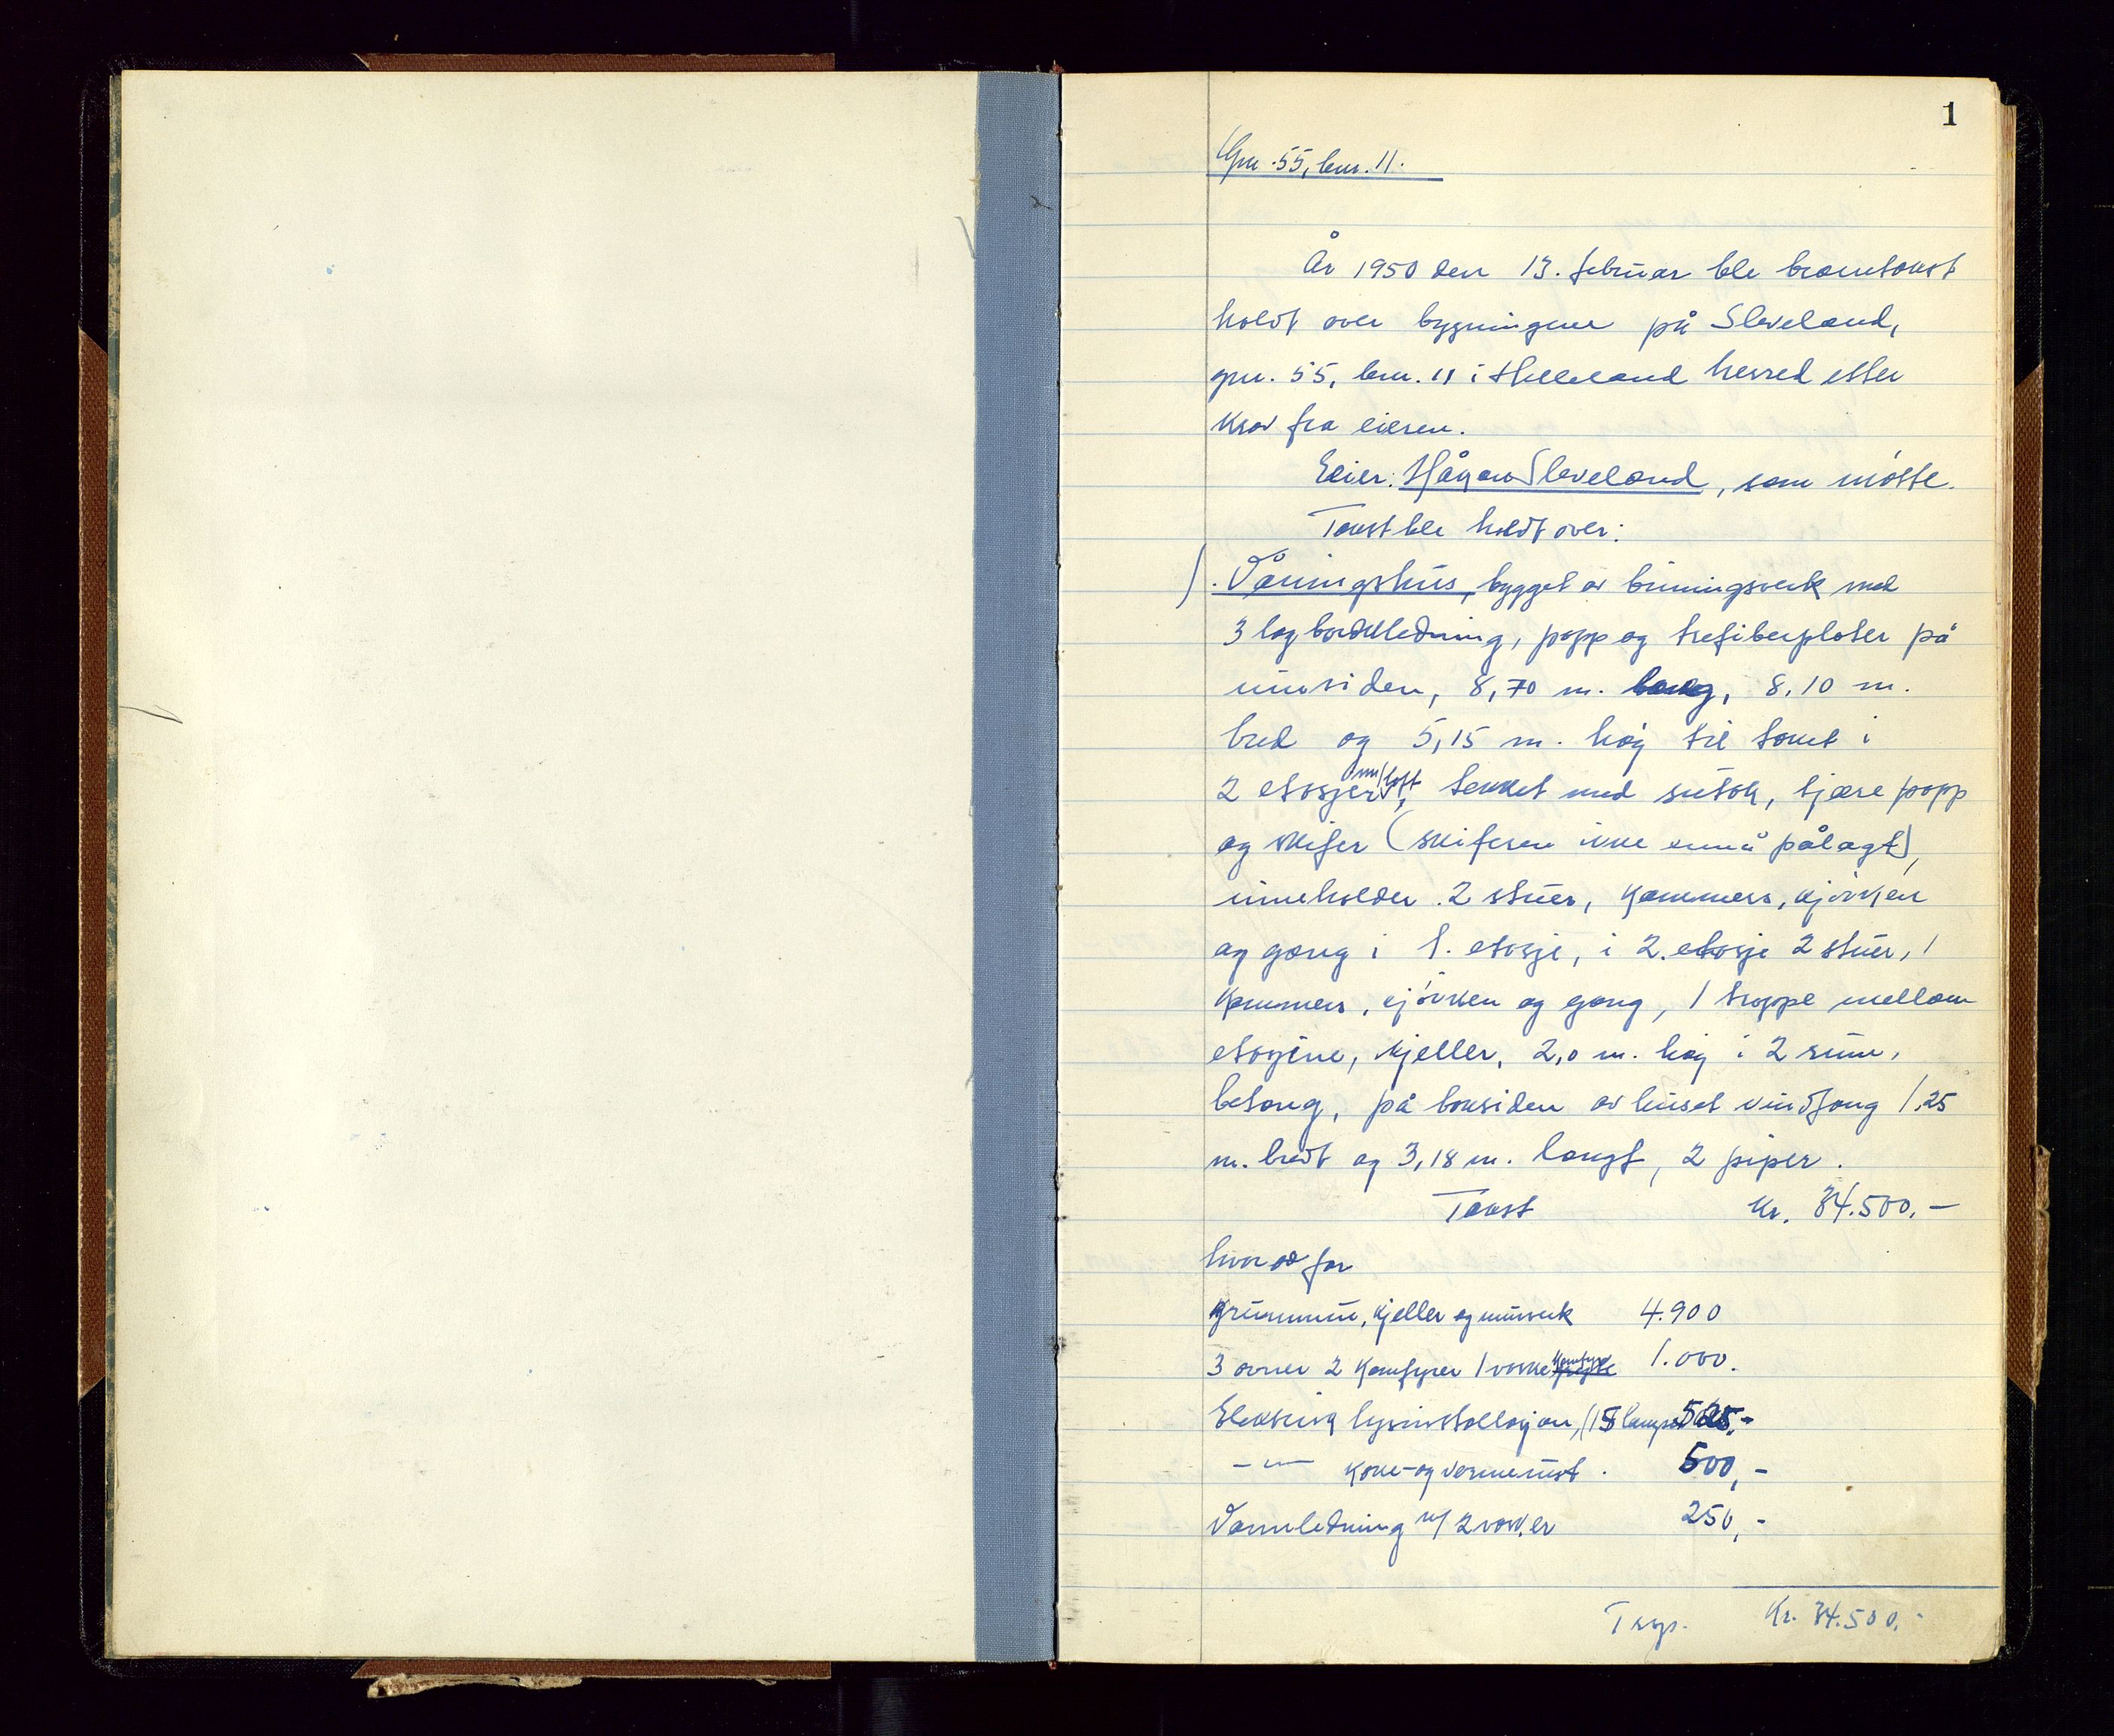 1
Gnr. 55, bnr. 11.
År 1950 den 13. februar ble branntakst
holdt over bygningene på Sleveland,
gnr. 55, bnr. 11 i Helleland herred etter
krav fra eieren.
Eier: Håkon Sleveland, som møtte.
Takst ble holdt over:
1. Våningshus, bygget av binningsverk med
3 lag bordkledning, papp og trefiberplater på
innsiden, 8,70 m. lang, 8,10 m.
bred og 5,15 m. høg til taket i
2 etasjer m/loft, tekket med sutak, tjærepapp
og skifer (skiferen ikke ennå pålagt),
inneholder 2 stuer, kammers, kjøkken
og gang i 1. etasje, i 2. etasje 2 stuer, 1
kammers, kjøkken og gang, 1 trappe mellom
etagene, kjeller, 2,0 m. høg i 2 rum,
betong, på baksiden av huset vindfang 1,25
m. bredt og 3,18 m. langt, 2 piper.
Takst Kr. 34.500.-
hvorav for
grunnmur, kjeller og murverk 4.900
3 ovner 2 komfyrer 1 vaske komfyr 1.000.
Elektrisk lysinstallasjon, (15 lamper) 525.-
-"- koke- og varmeinst. 500,-
Vannledning m/ 2 vasker 250,-
Trsp. Kr. 34.500.-